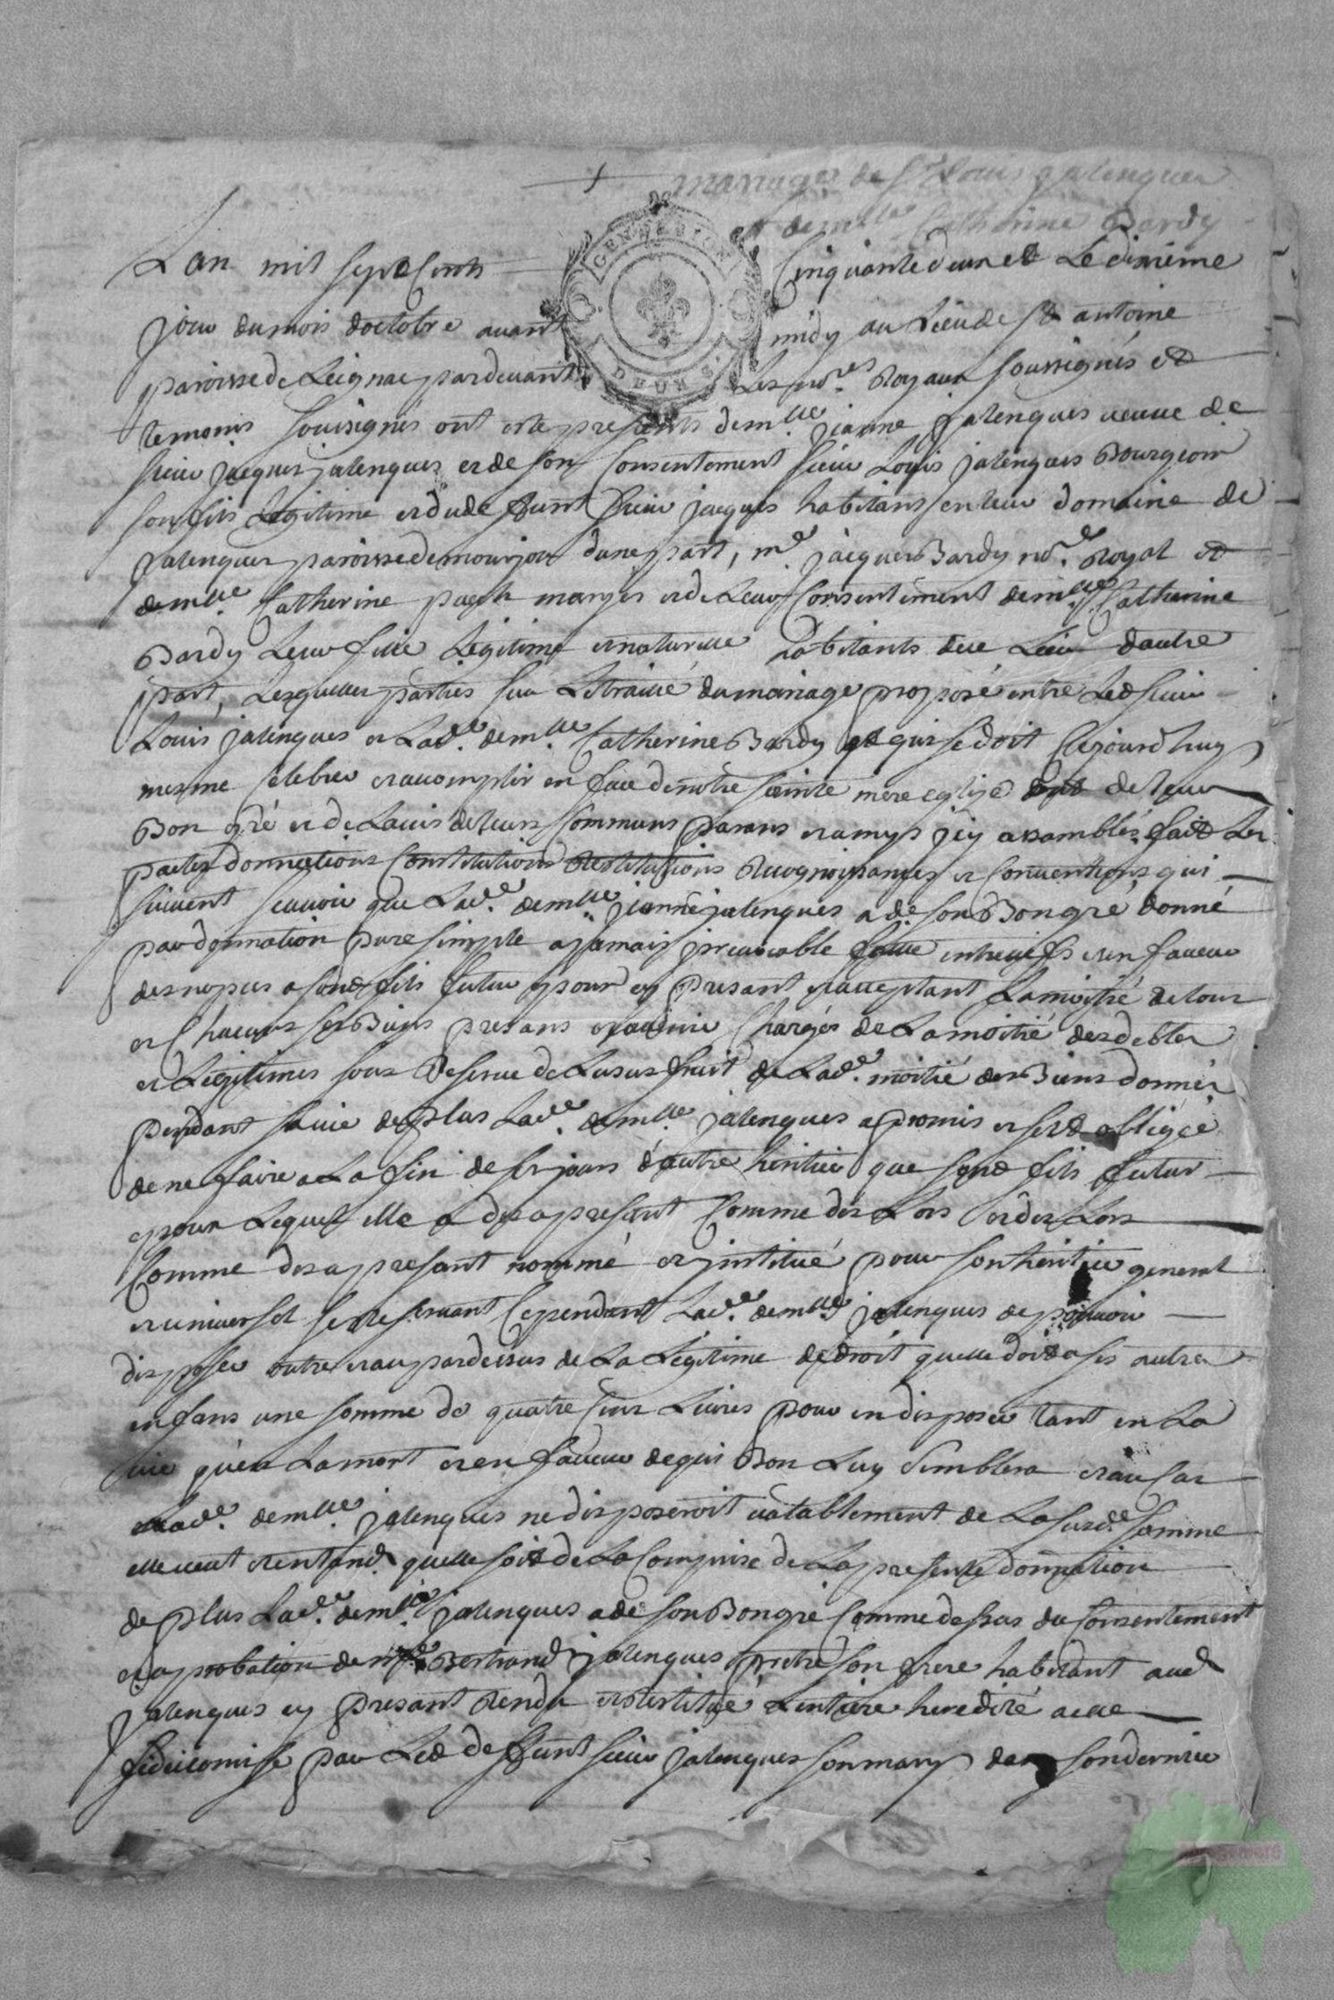 mariage de Sr Louis jalenques
et de mlle Catherine Bardy
GEN DE RION
DEUX S
Lan mil sept Cents Cinquante deux et Le dixieme
jour du mois doctobre avant midy au Lieu de St antoine
paroisse de Leignac pardevant Les nores Royaux soussignés et
temoins souisignés ont este presents demlle jeanne jalenques veuve de
sieur jacques jalenques et de son Consentement sieur Louis jalenques Bourgeois
son fils Legitime et du deffunt sieur jacques habitans en leur domaine de
jalenques paroisse de mourjou dune part, me jacques Bardy nore Royal et
demlle Catherine pages mariés et de Leur Consentement demlle Catherine
Bardy Leur fille Legitime et naturelle habitants du Lieu dautre
part, Lesquelles parties sur Le traitté du mariage proposé entre Led sieur
Louis jalenques et Lade demlle Catherine Bardy et qui se doit Cejourdhuy
mesme Celebrer et accomplir en face de notre sainte mere eglise ont de leur
Bon gré et de Lavis de leurs Communs parans et amys jcy assamblés fait Les
pactes donnations Constitutions Restitutions Recognoissances et Conventions qui
suivent scavoir que Lade demlle jeanne jalenques a de son Bon gré donné
par donnation pure simple a jamais jrrevocable faitte entre vifs et en faveur
des nopces a sond fils futur epour cy presant et acceptant La moitié de tous
et Chacuns ses Biens presans et advenir Chargés de La moitié des debtes
et Legitimes sous Reserve de Lusufruit de Lade moitié des Biens donnés
pendant sa vie de plus Lade demlle jalenques a promis et sest obligée
de ne faire a La fin de ses jours dautre heritier que sond fils futur
epoux Lequel elle a des a present Comme des Lors et des Lors
Comme des a present nommé et jnstitué pour son heritier general
et universel se Reservant Cependant Lade demlle jalenques de pouvoir
disposer outre et au pardessus de La Legitime de droit quelle doit a ses autres
enfans une somme de quatre Cens Livres pour en disposer tant en La
vie qu'en La mort et en faveur de qui Bon Luy semblera et au Cas
Lade demlle jalenques ne disposeroit vallablement de La susde somme
elle veut et entand quelle soit de La Comprise de La presente donnation
de plus Lade demlle jalenques a de son Bon gré Comme dessus du Consentement
et aprobation de me Bertrand jalenques pretre son frere habitant aud
jalenques cy presant Rendu et Restitué Lentiere heredité a elle
fideicomise par Led deffunt sieur jalenques son mary de son dernier